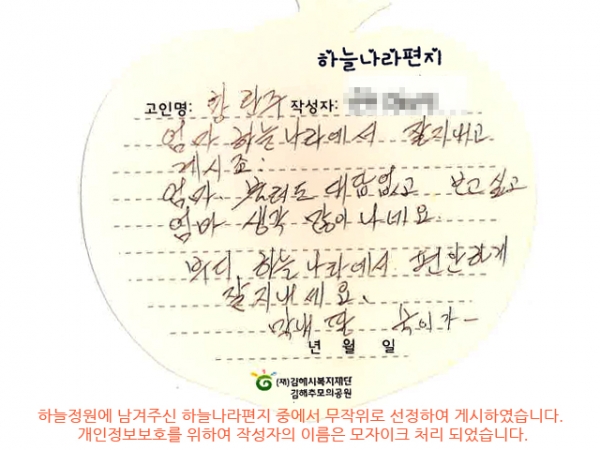 하늘나라편지
고인명: 황 란주 작성자:
엄마 하늘나라에서 잘지내고
계시죠.
엄마 불러도 대답없고 보고싶고
엄마 생각 많이나네요.
부디 하늘나라에서 편안하게
잘지내세요.
막내 딸 이가-
년 월 일
(재)김해시복지재단
김해추모의공원
하늘정원에 남겨주신 하늘나라편지 중에서 무작위로 선정하여 게시하였습니다.
개인정보보호를 위하여 작성자의 이름은 모자이크 처리 되었습니다.